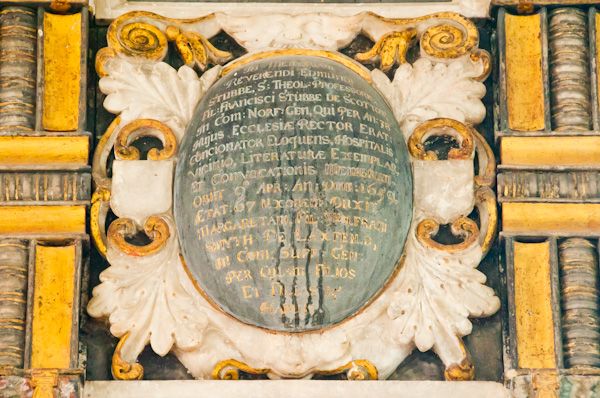 In Memoriam
Reverendi Edmundi
Stubbe, S: Theol: Professor
Fil: Francisci Stubbe De Scottow
In Com: Norf: Gen, Qui Per An
Hujus Ecclesiæ Rector Erat
Concionator Eloquens, Hospitalis
Vicinio, Literaturæ Exemplar
Et Convocationis
Obiit Apr: An: Dni: 16
Ætat: 67 Uxorem Duxit
Margaretam Fil:
Smyth De Laxfeild
In Com: Suff: Gen:
Per Quam Filios
Et